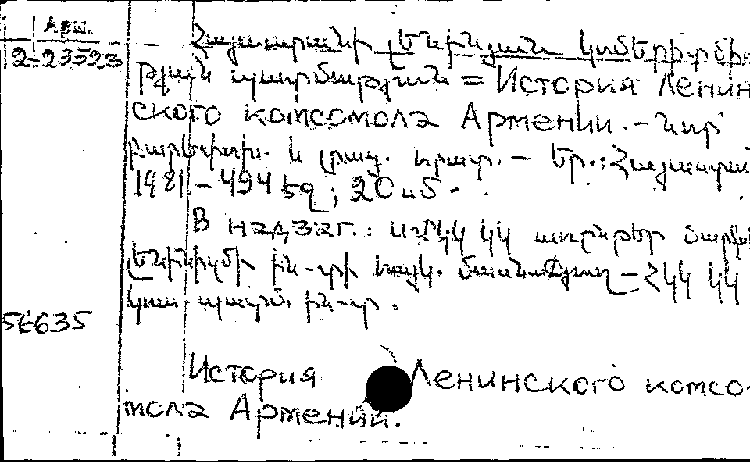 Арм.
2-23523 Հայաստանի լենինյան կոմերիտմիու
թյան պատմություն = История Ленин
ского комсомола Армении. - Նոր
բարեփոխ. և լրաց. հրատ. - Եր.: Հայաստան
1981 - 494 էջ; 20 սմ.
В надзаг.: ՍՄԿԿ ԿԿ առընթեր մարքս
լենինիզմի ին-տի հայկ. մասնաճյուղ - ՀԿԿ ԿԿ
կուս. պատմ. ին-տ.
56635
История Ленинского комсо-
мола Армении.